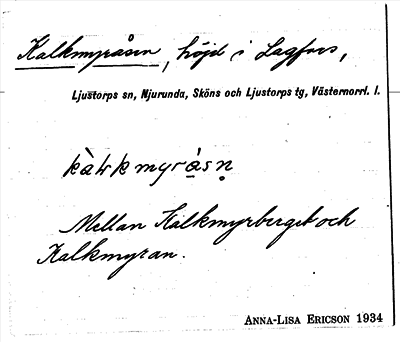 Kalkmyråsen, höjd i Lagfors,
Ljustorps sn, Njurunda, Sköns och Ljustorps tg, Västernorrl. l.
Mellan Kalkmyrberget och
Kalkmyran.
ANNA-LISA ERICSON 1934